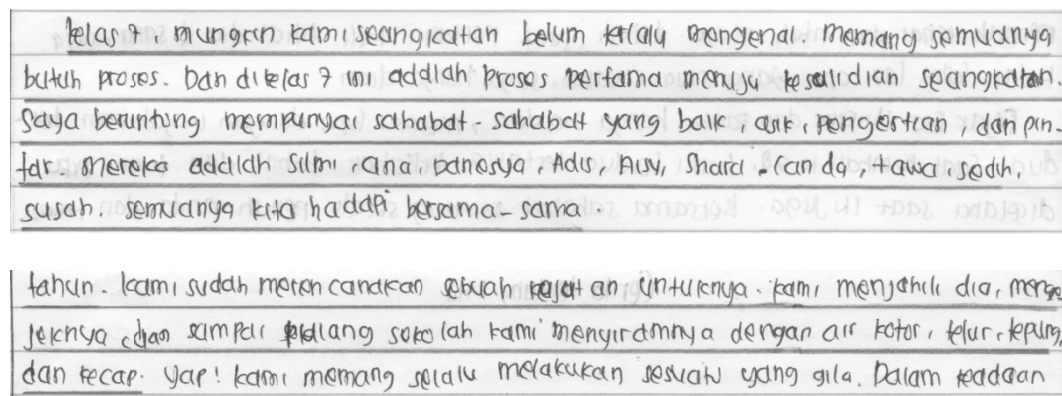 kelas 7, mungkin kami seangkatan belum terlalu mengenal. Memang semuanya
butuh proses. Dan di kelas 7 ini adalah proses pertama menuju kesolidian seangkatan
saya beruntung mempunyai sahabat-sahabat yang baik, asik, pengertian, dan pin-
tar. Mereka adalah Silmi, sana, Danesya, Adis, Ausy, Shara. Canda, tawa, sedih,
susah. semuanya kita hadapi bersama-sama.
tahun. kami sudah merencanakan sebuah untuknya. kami menjahili dia, menge
jeknya, dan sampai pulang sekolah kami menyiramnya dengan air kotor, telur, tepung,
dan kecap. Yap! kami memang selalu melakukan sesuatu yang gila. Dalam keadaan